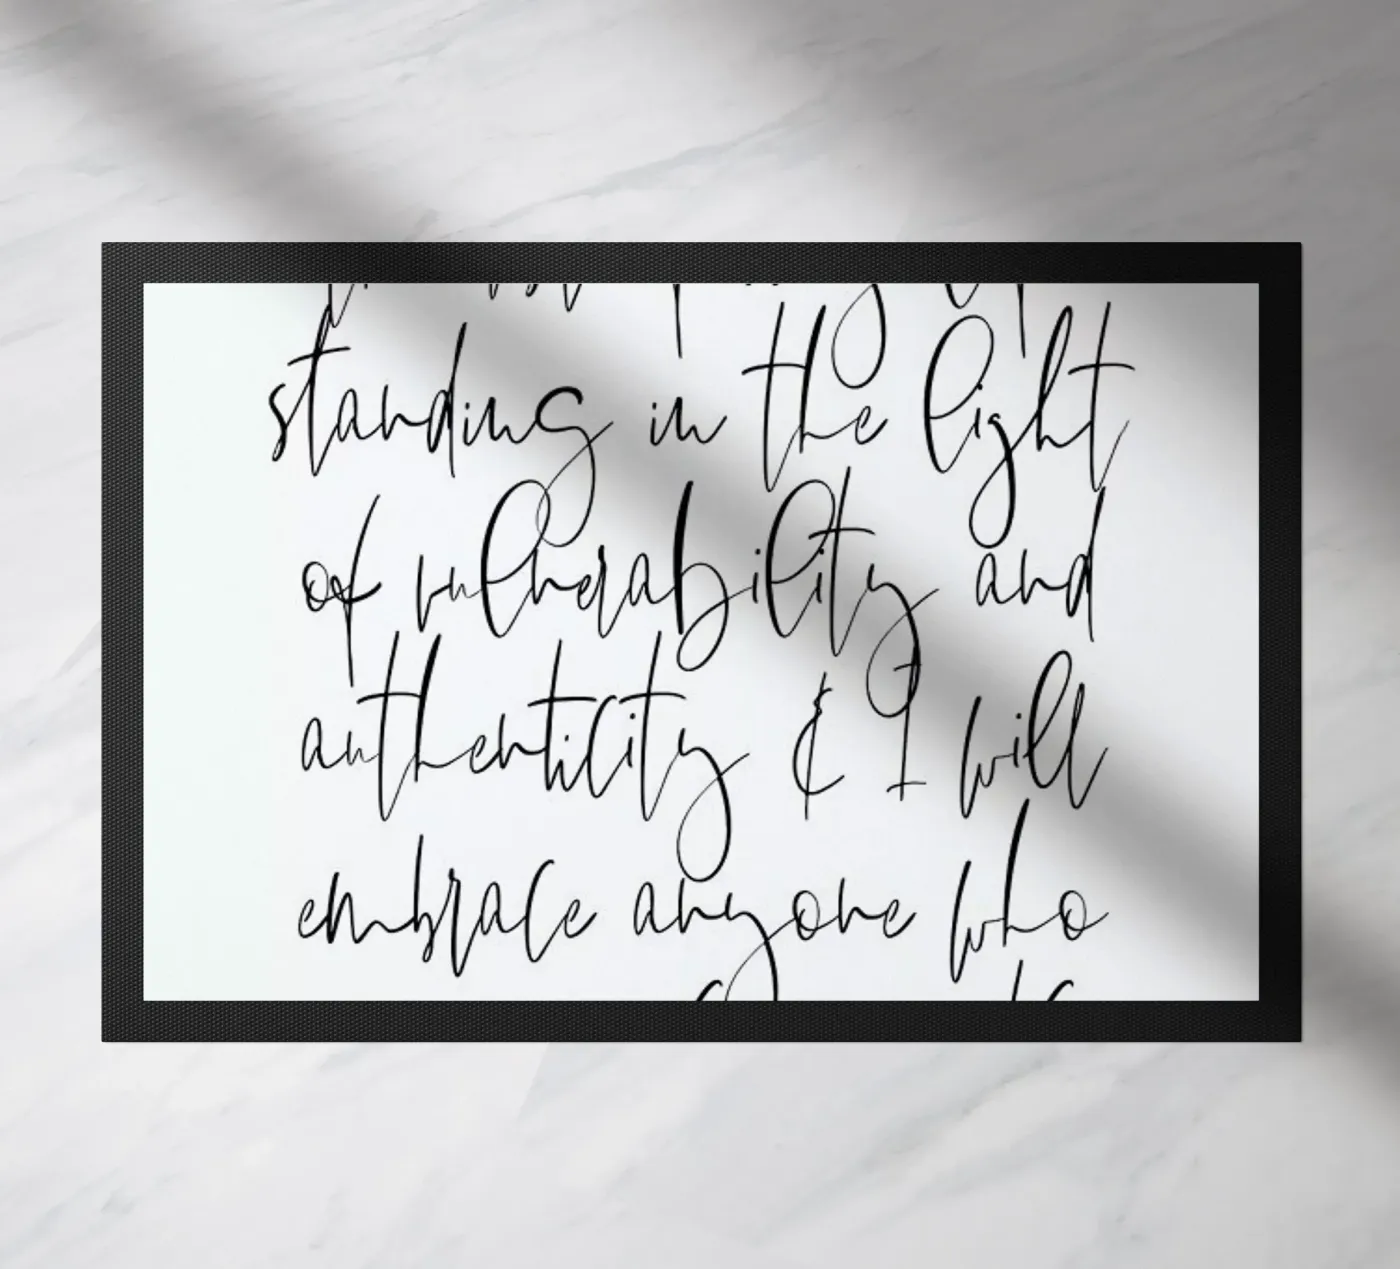 standing in the light
of vulnerability and
authenticity & I will
embrace anyone who